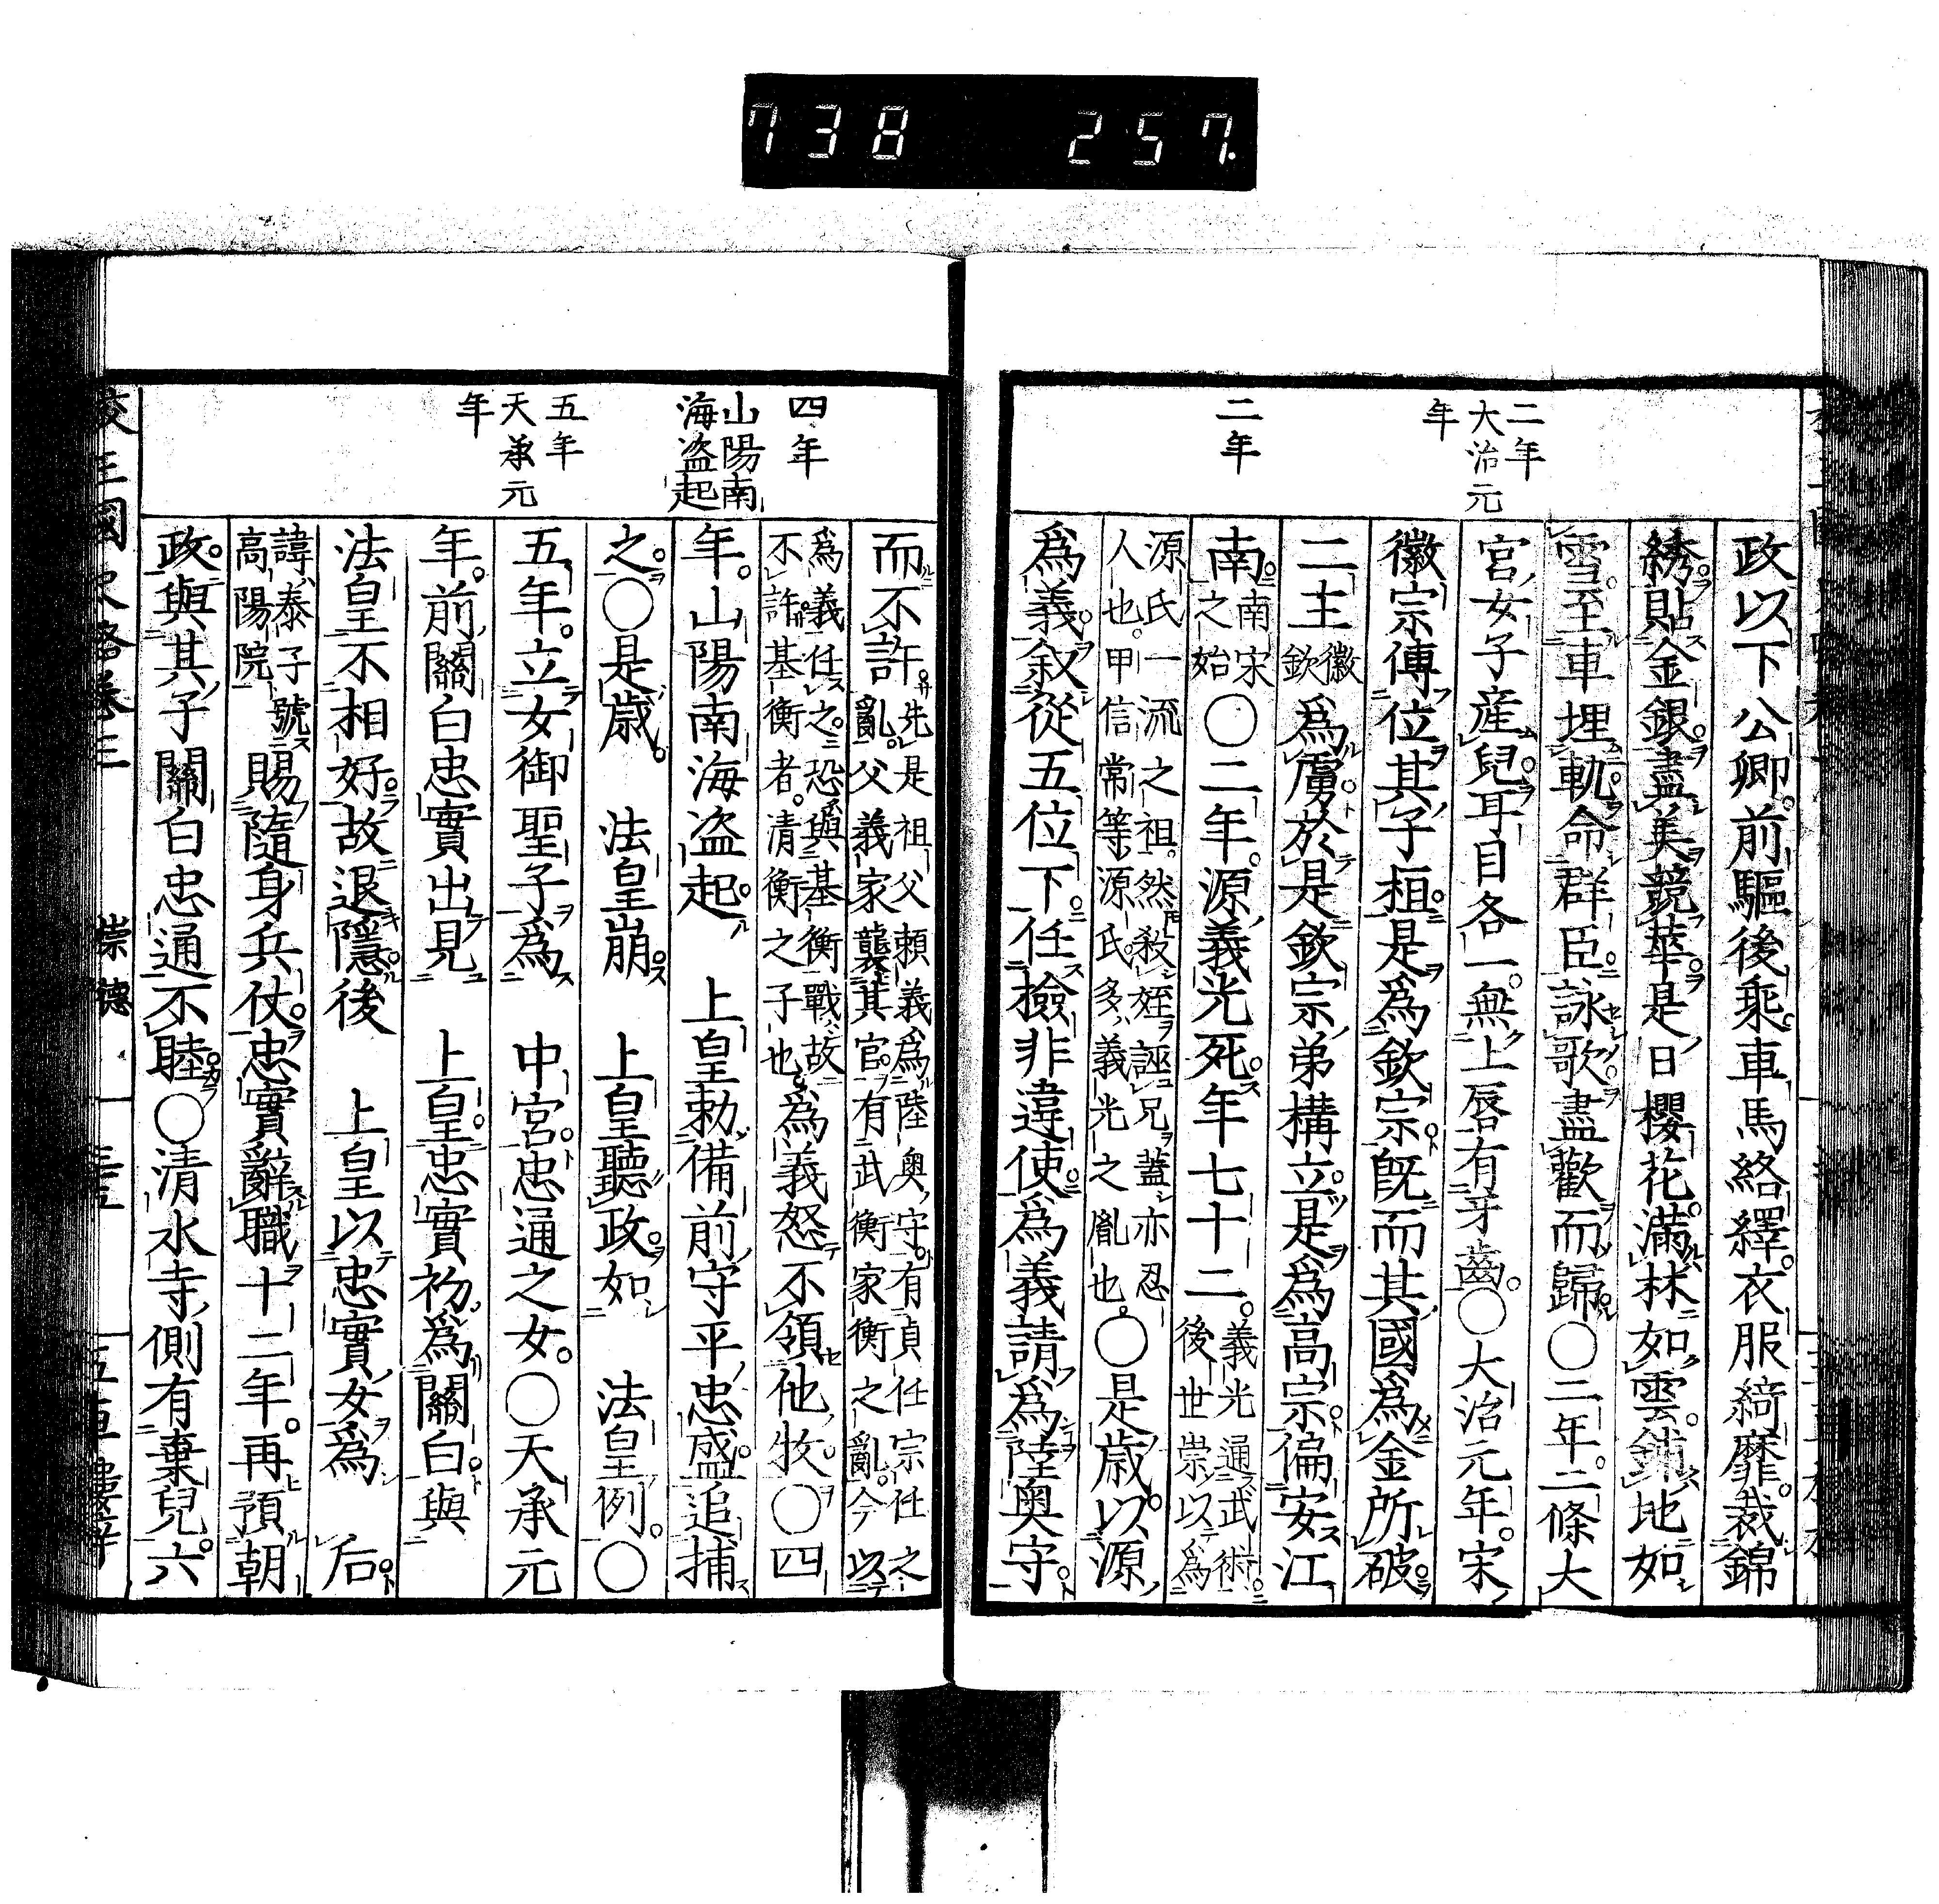 738 257.
二年
大治元
年
二年
政以下公卿前驅後乘車馬絡繹衣服綺靡裁錦
綉貼金銀盡美競華是日櫻花滿林如雲鋪地如
雪至車埋軌命群臣詠歌盡歡而歸○二年二條大
宮女子産兒耳目各一無上唇有牙齒○大治元年宋
徽宗傳位其子桓是爲欽宗既而其國爲金所破
二主徽欽爲虜於是欽宗弟構立是爲高宗偏安江
南南宋之始○二年源義光死年七十二義光通武術後世崇以爲
源氏一流之祖然殺姪誣兄蓋亦忍
人也甲信常等源氏多義光之胤也○是歳以源
爲義叙從五位下任撿非違使爲義請爲陸奥守
四年
山陽南
海盗起
五年
天承元
年
而不許先是祖父頼義爲陸奥守有貞任宗任之
亂父義家襲其官有武衡家衡之亂今以
爲義任之恐與基衡戰故
不許基衡者清衡之子也爲義怒不領他牧○四
年山陽南海盗起 上皇勅備前守平忠盛追捕
之○是歳 法皇崩 上皇聽政如 法皇例○
五年立女御聖子爲 中宮忠通之女○天承元
年前關白忠實出見 上皇忠實初爲關白與
法皇不相好故退隱後 上皇以忠實女爲 后
諱泰子號
高陽院賜隨身兵仗忠實辭職十二年再預朝
政與其子關白忠通不睦○清水寺側有棄兒六
校正國史略卷三 崇德